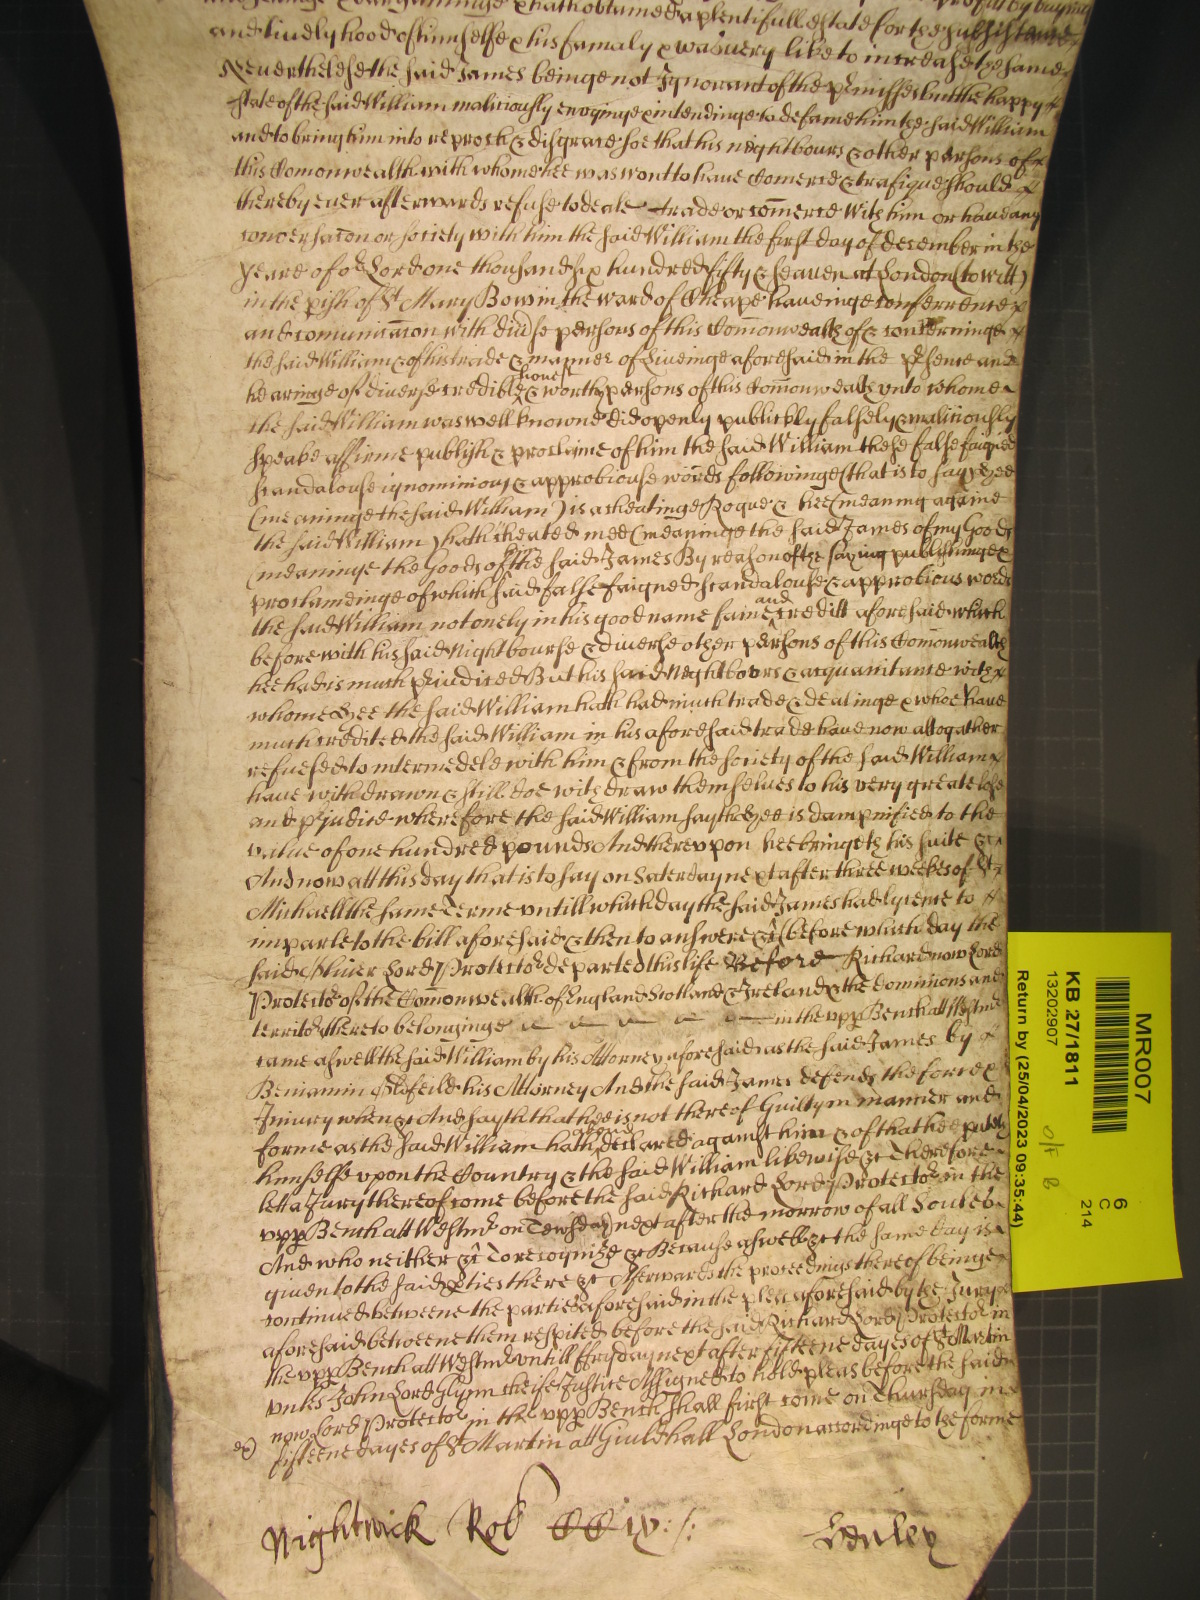 and livelyhood of himselfe & his famaly & was very like to increase the same
Neverthelesse the said James beinge not Ignorant of the p'misses but the happy
state of the said William maliciously envyinge & intendinge to defame him the said William
and to bring him into reproch & disgrace soe that his neighbours & other persons of
this Comonwealth with whome hee was wont to have Comerce & trafique should
thereby ever afterwards refuse to deale trade or comerce with him or have any
conversacon or society with him the said William the first day of december in the
yeare of or Lord one thousand six hundred fifty & seaven at London (to witt)
in the p'ish of St Mary Bow in the ward of Cheape haveinge conferrence
and comunicacon with div'se persons of this Comonwealth of & concerninge
the said William & of his trade & manner of Liveinge aforesaid in the p'sence and
hearinge of diverse credible honest & worthy persons of this Comonwealth unto whome
the said William was well knowne did openly publickly falsely & maliciously
speake affirme publish & proclaime of him the said William these false faigned
scandalouse ignominious & approbiouse words followinge (that is to say) hee
(meaninge the said William) is a cheatinge Rogue & hee (meaning againe
the said William) hath cheated mee (meaninge the said James of my Goods
(meaninge the Goods of the said James By reason of the saying publishinge &
proclameinge of which said false faigned scandalouse & approbious words
the said William not onely in his good name fame and creditt aforesaid which
before with his said Nightbourse & diverse other persons of this Comonwealth
hee had is much p'iudiced But his said Neghbours & acquaintance with
whome hee the said William hath had much trade & dealinge & whoe have
much credited the said William in his aforesaid trade have now altogather
refuesed to intermedele with him & from the society of the said William
have withdrawn & still doe withdraw themselves to his very greate losse
and p'judice wherefore the said William sayth hee is dampnified to the
value of one hundred pounds And thereupon hee bringeth his suite &c
And now att this day that is to say on Saterday next after three weekes of St
Michaell the same Terme untill which day the said James had lycence to
imparle to the bill aforesaid & then to answere &c (before which day the
said Oliver Lord Protector departed this life Before Richard now Lord
Protector of the Comonwealth of England Scotland & Ireland & the dominions and
territor' thereto belonginge in the upp Bench att Westmr
came aswell the said William by his Attorney aforesaid as the said James by
Beniamin his Attorney And the said James defends the force &
Iniury when &c And sayth that hee is not thereof Guilty in manner and
forme as the said William hath above declared against him & of that hee putteth
himselfe upon the Country & the said William likewise &c Therefore
lett a Jury thereof come before the said Richard Lord Protector in the
upp Bench att Westmr on Tewsday next after the morrow of all Soules
And who neither &c To recognize &c Because aswell &c the same day is
given to the said p'ties there &c Afterwards the proceedings thereof beinge
continued betweene the parties aforesaid in the plea aforesaid by the Jurye
aforesaid betweene them respited before the said Richard Lord Protector in
the upp Bench att Westmr untill ffryday next after fifteene dayes of St Martin
unles John Lord Glynn cheife Justice Assigned to hold pleas before the said
now Lord Protector in the upp Bench shall first come on Thursday in
fifteene dayes of St Martin att Guildhall London accordinge to the forme
Nightwick Rob CC ix
Henley
MR007
KB 27/1811
13202907
Return by (25/04/2023 09:35:44)
6
C
214